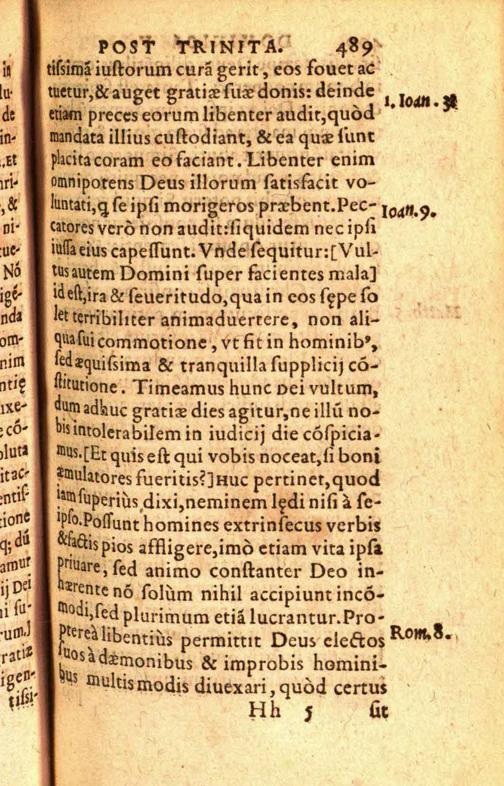 POST TRINITA. 489
tissimā iustorum curā gerit, eos fouet ac
tuetur, & auget gratiæ suæ donis: deinde
etiam preces eorum libenter audit, quòd
1. Ioan. 3.
mandata illius custodiant, & ea quæ sunt
placita coram eo faciant. Libenter enim
omnipotens Deus illorum satisfacit vo-
luntati, q̃ se ipsi morigeros præbent. Pec-
Ioan. 9.
catores verò non audit: siquidem nec ipsi
iussa eius capessunt. Vnde sequitur: [Vul-
tus autem Domini super facientes mala]
id est, ira & seueritudo, qua in eos sępe so
let terribiliter animaduertere, non ali-
qua sui commotione, vt fit in hominibꝰ,
sed æquissima & tranquilla supplicij cō-
stitutione. Timeamus hunc Dei vultum,
dum adhuc gratiæ dies agitur, ne illū no-
bis intolerabilem in iudicij die cōspicia-
mus. [Et quis est qui vobis noceat, si boni
æmulatores fueritis?] Huc pertinet, quod
iam superiùs dixi, neminem lędi nisi à se-
ipso. Possunt homines extrinsecus verbis
& factis pios affligere, imò etiam vita ipsa
priuare, sed animo constanter Deo in-
hærente nō solùm nihil accipiunt incō-
modi, sed plurimum etiā lucrantur. Pro-
pterea libentiùs permittit Deus electos
Rom. 8.
suos à dæmonibus & improbis homini-
bus multis modis diuexari, quòd certus
Hh 5 sit